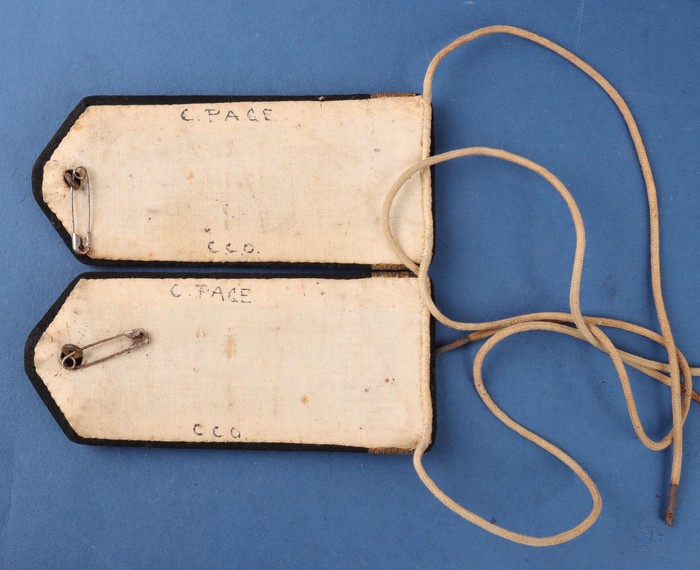 C. PAGE
C C O.
C. PAGE
C C O